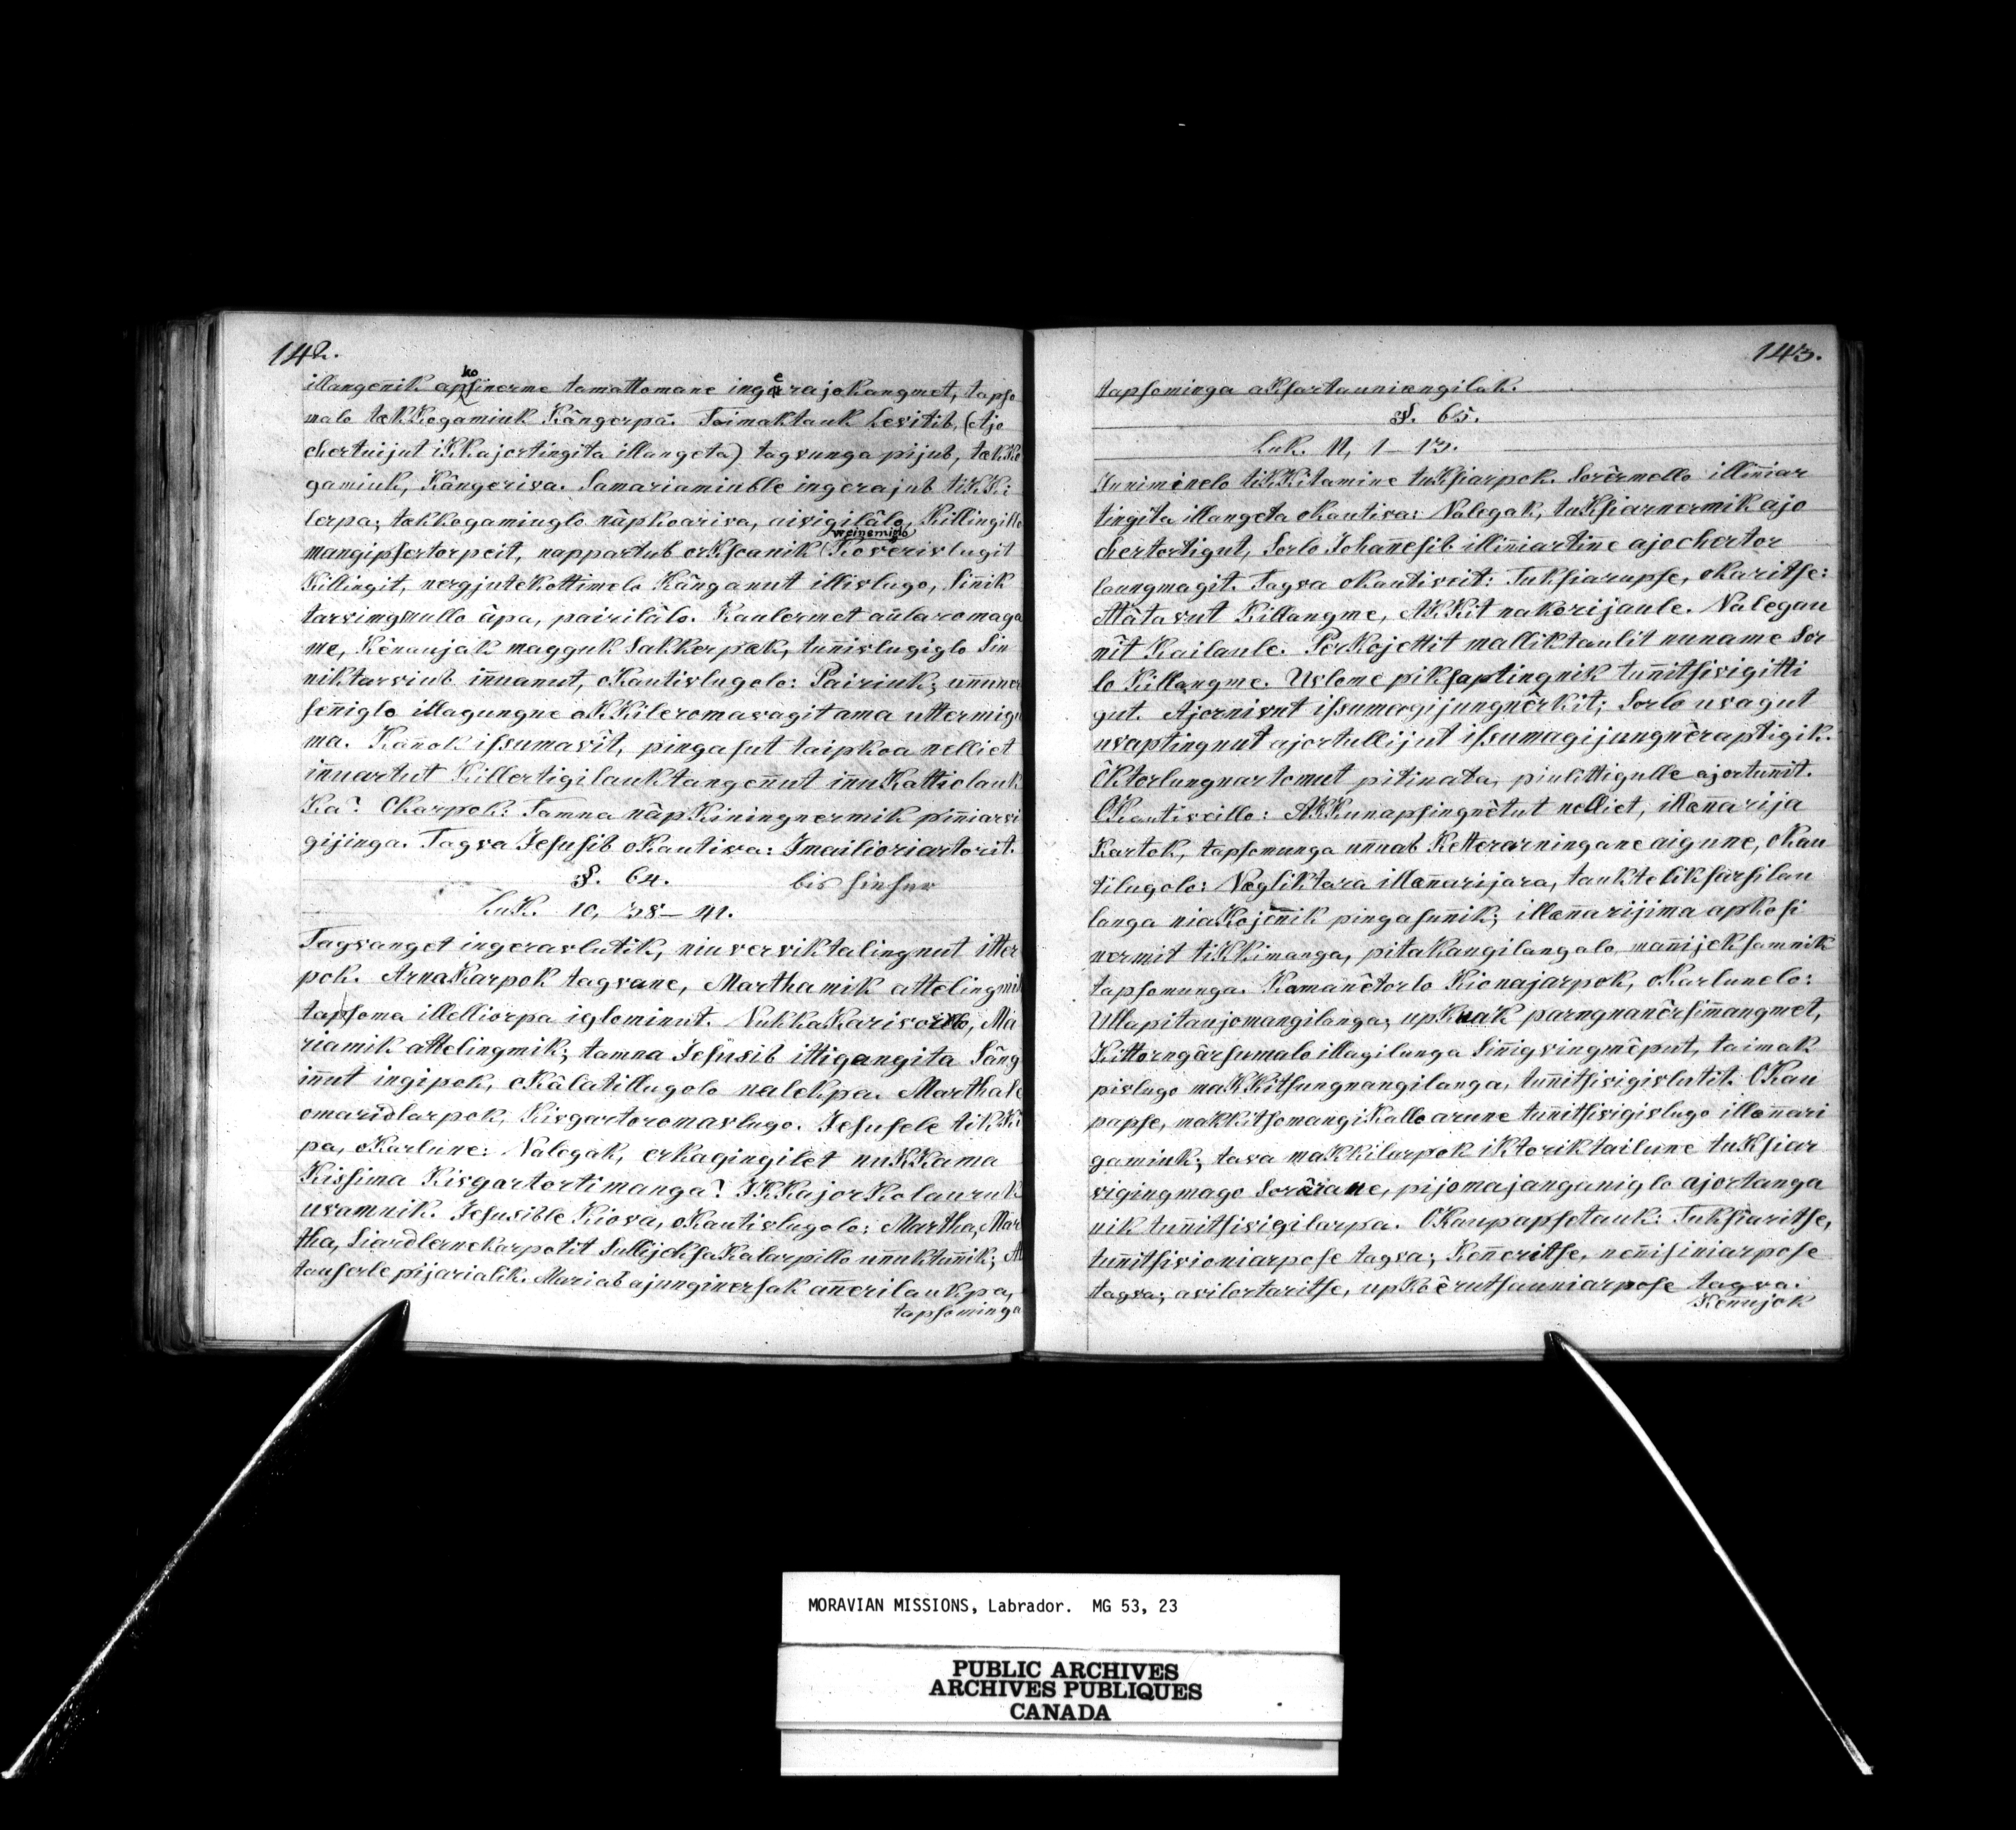 142.
illangenik apkosinerme tamattomane ingerajokangmet, tapso
malo tækKogamiuk Kângerpâ. Taimaktauk Levitib, (Ajo
chertuijut iKKajortingita illangeta) tagvunga pijub, tækKo
gamiuk, Kângeriva. Samariamiuble ingerajub tiKKi
lerpa; takkogamiuglo nâpkoariva, aivigilâlo, Killingillo
mangipsertorpeit, nappartub orKsoanik (weinemiglo) Koverivlugit
Killingit, nergjutekottiminelo Kânganut illivlugo, Siñik
tarvingmullo âpa, pairilâlo. Kaulermet aûlaromaga
me, Kênaujak magguk Sakkerpæk, tuñivlugiglo Sin
niktarviub iñuanut, oKautivlugolo: Pairiuk; uñuner
señiglo illagungne oKKileromavagit ama uttermigu
ma. Kañok issumavît, pingasut taipkoa nelliet
iñuartut Killertigilauktangeñut inuKattiolauk
Ka? OKarpok: Tamna nâpKiningnermik piñiarvi
gijinga. Tagva Jesusib oKautiva: Imailioriartorit.
§. 64. bis hieher
LuK. 10, 38-41.
Tagvanget ingeravlutik, niuverviktalingnut itter
pok. ArnaKarpok tagvane, Marthamik attelingmik
tapsoma illelliorpa iglominut. NukkaKarivoillo, Ma
riamik attelingmik; tamna Jesusib ittigangita Sâng
iñut ingipok, oKâlatillugolo nalekpa. Marthale
omaridlarpok, Kivgartoromavlugo. Jesusele tiKKi
pa, oKarlune: Nalegak, erkagingilet nuKKama
Kissima Kivgartortimanga? IKKajorKolauruk
uvamnik. Jesusible Kiova, oKautivlugolo: Martha, Mar
tha, SiardlerneKarpotit SullijeksaKalarpillo uñuktuñik; A
tauserle pijarialik. Mariab ajunginersak añerilaukpa,
tapsominga
143.
tapsominga aKsartauniængilak.
§. 65.
Luk. 11, 1-13.
Inuniminelo tiKKitamine tuKsiarpok. Sorêrmello illiñiar
tingita illangeta oKautiva: Nalegak, tuKsiarnermik ajo
chertortigut, Sorlo Johañesib illiñiartiñe ajochertor
laungmagit. Tagva oKautiveit: Tuksiarupse, oKaritse:
Atâtavut Killangme, AKKit nakorijaule. Nalegau
nît Kailaule. PerKojettit malliktaulit nuname Sor
lo Killangme. Uvlome piksaptingnik tuñitsivigitti
gut. Ajornivut issumagijungnêrkit; Sorlo uvagut
uvaptingnut ajortullijut issumagijungnêraptigik.
Oktorlungnartomut pitinata, piulittigulle ajortuñit.
OKautiveillo: AKKunapsingnêtut nelliet, illæñarija
Kartok, tapsomunga uñuab Ketterarningane aigune, oKau
tilugolo: Nægliktara illæñarijara, tauktoliksarsilau
langa niaKojeñik pingasuñik; illæñarijima apkosi
nermit tiKKimanga, pitakangilangalo mañijeksamnik
tapsomunga. Komanêtorlo Kionajarpok, oKarlunelo:
Ullapitaujomangilanga; upKuak parngnanêrsimangmet,
Kittorngârsumalo illagilunga Siñigvingmêput, taimak
pivlugo maKKitsungnangilanga, tuñitsivigivlutit. OKau
papse, makkitsomangiKalloarune tuñitsivigivlugo illæñari
gamiuk; tava maKKilarpok iKtoriktailune tuKsiar
vigingmago Sorâirane, pijomajanganiglo ajortanga
nik tuñitsivigilarpa. OKaupapsetauk: Tuksiaritse,
tuñitsivioniarpose tagva; Keñeritse, neñisiniarpose
tagva; avilortaritse, upKoêrutsauniarpose tagva.
Keñujok
MORAVIAN MISSIONS, Labrador. MG 53, 23
PUBLIC ARCHIVES
ARCHIVES PUBLIQUES
CANADA